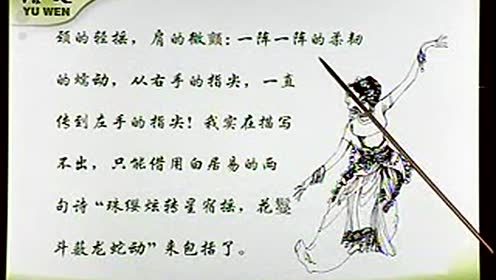 YU WEN
颈的轻摇，肩的微颤：一阵一阵的柔韧
的蠕动，从右手的指尖，一直
传到左手的指尖！我实在描写
不出，只能借用白居易的两
句诗“珠缨炫转星宿摇，花鬘
斗薮龙蛇动”来包括了。